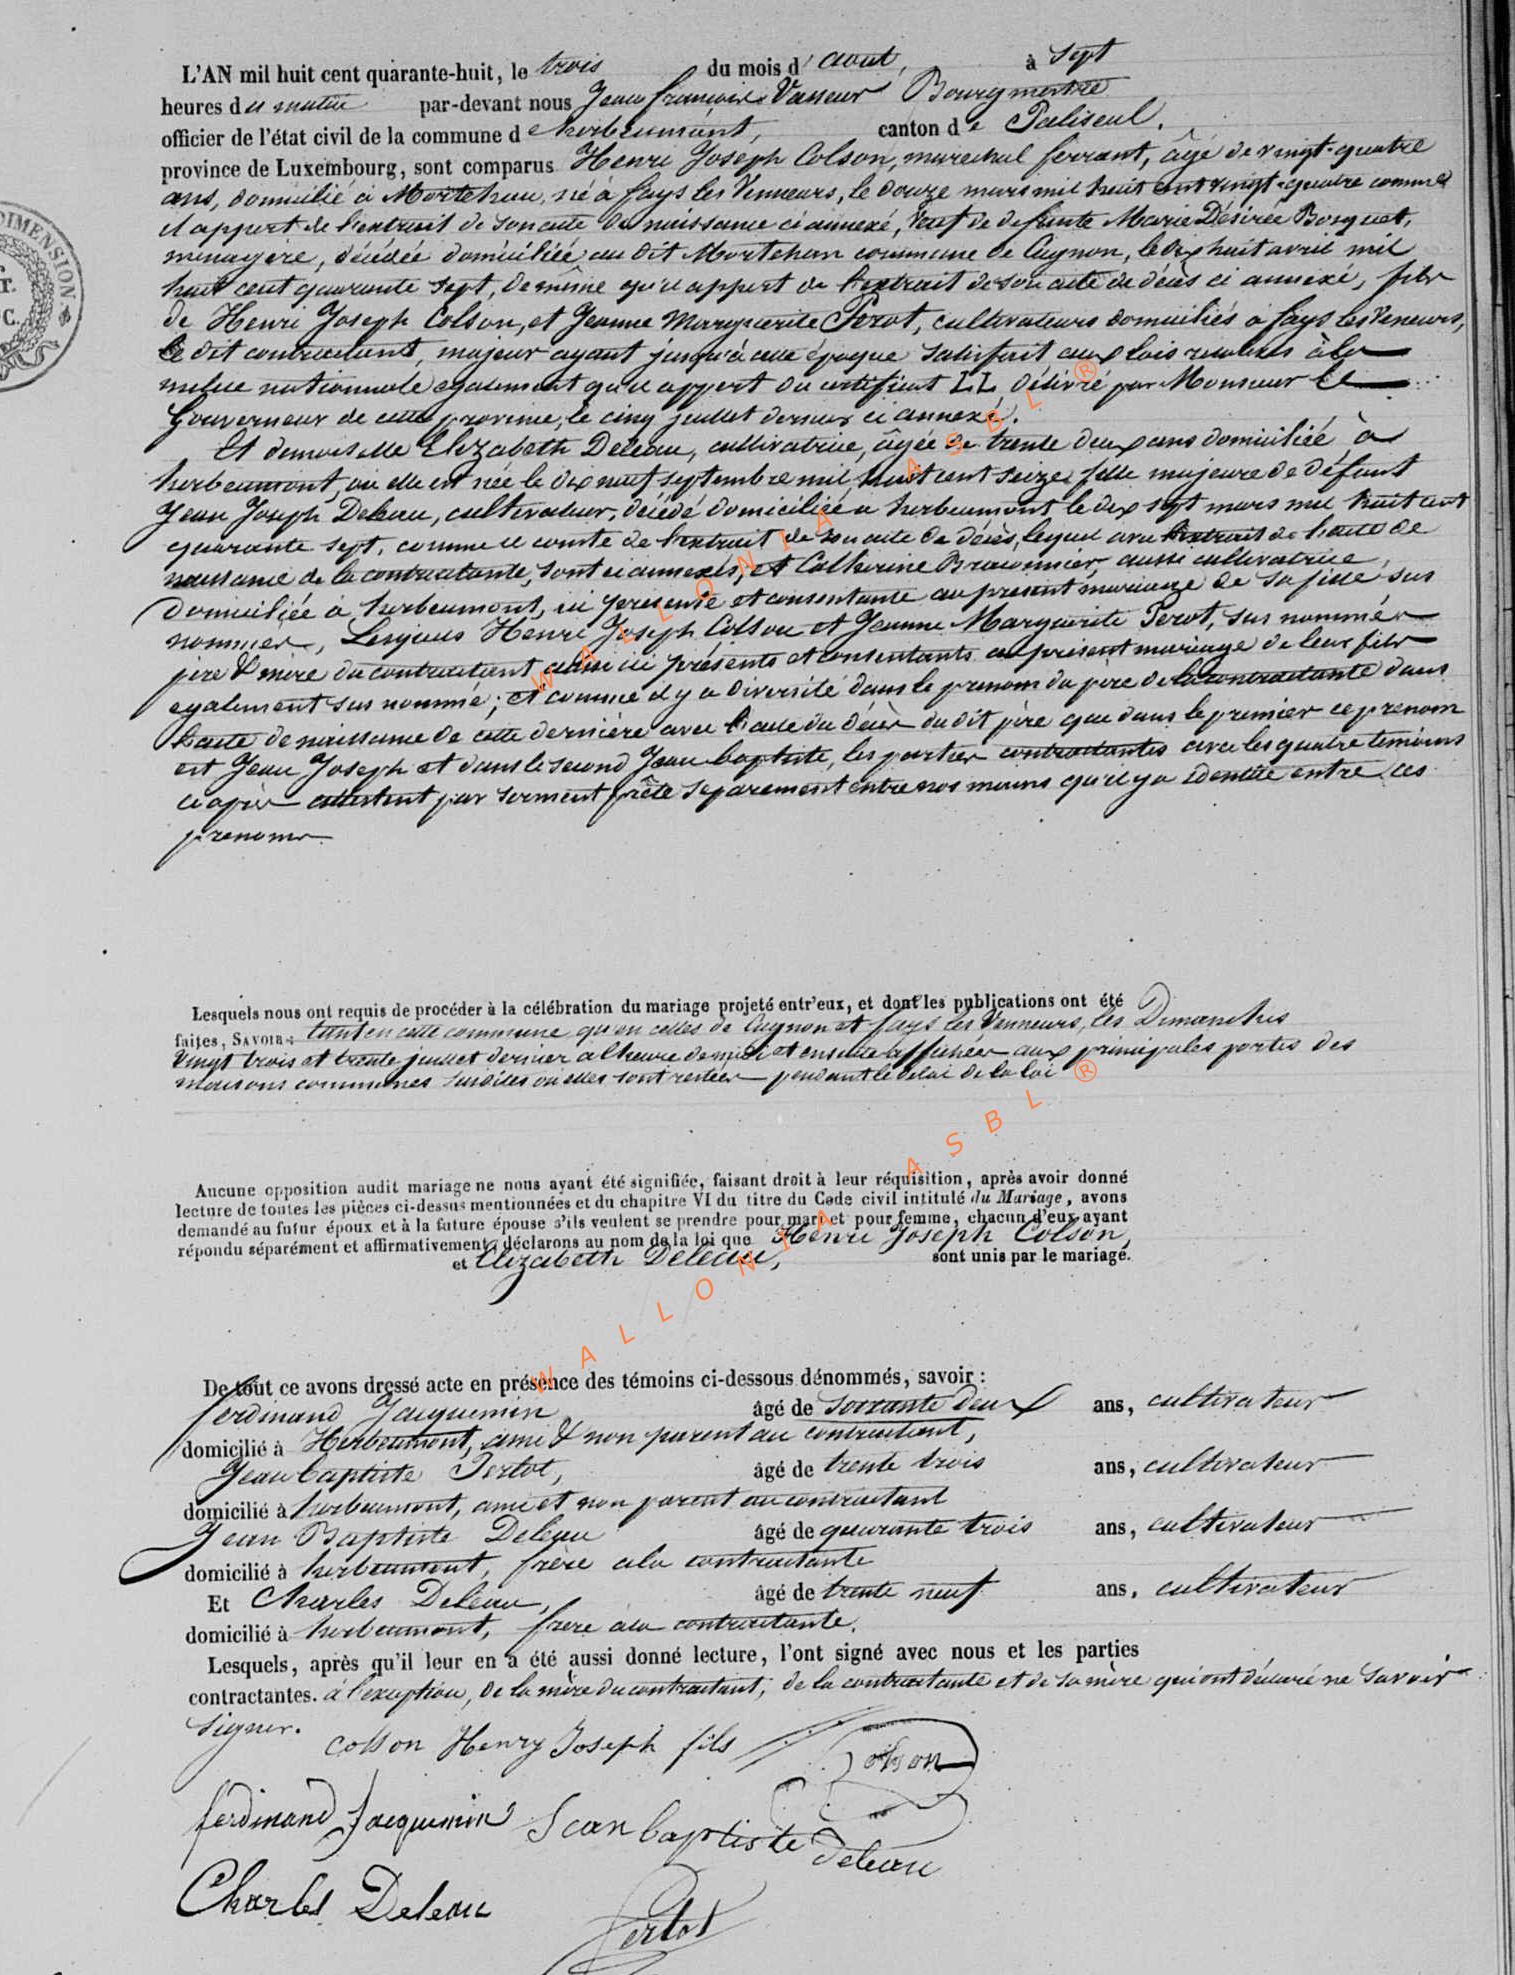 L'AN mil huit cent quarante-huit, le trois du mois d'aout, à Sept
heures du matin par-devant nous Jean françois Vasseur Bourgmestre
officier de l'état civil de la commune d'herbeumont, canton de Paliseul.
province de Luxembourg, sont comparus Henri Joseph Colson, marechal ferrant, âgé de vingt-quatre
ans, domicilié à Mortehan, né à fays les Venneurs, le douze mars mil huit cent vingt-quatre comme
il appert de l'extrait de son acte de naissance ci annexé, veuf de defunte Marie Désirée Bosquet,
menagère, décédée domiciliée au dit Mortehan commune de Cugnon, le dix huit avril mil
huit cent quarante sept, de même qu'il appert de l'extrait de son acte de décès ci annexé, fils
de Henri Joseph Colson, et Jeanne Marguerite Perot, cultivateurs domiciliés à fays les Veneurs,
le dit contractant, majeur ayant jusqu'à cette époque satisfait aux lois relatives à la
milice nationale egalement qu'il appert du certificat LL, délivré par Monsieur le
Gouverneur de cette province, le cinq juillet dernier ci annexé.
Et demoiselle Elizabeth Deleau, cultivatrice, âgée de trente deux ans domiciliée à
herbeumont, où elle est née le dix neuf septembre mil huit cent seize, fille majeure de défunt
Jean Joseph Deleau, cultivateur, décédé domicilié à herbeumont le dix sept mars mil huit cent
quarante sept, comme il conste de l'extrait de son acte de décès, lequel avec l'extrait de l'acte de
naissance de la contractante, sont ci annexés, et Catherine Braconnier, aussi cultivatrice,
domiciliée à herbeumont, ici présente et consentante au présent mariage de sa fille sus
nommée, Lesquels Henri Joseph Colson et Jeanne Marguerite Perot, sus nommés
père & mère du contractant aussi ici présents et consentants au présent mariage de leur fils
egalement sus nommé; et comme il y a diversité dans le prenom du père de la contractante dans
l'acte de naissance de cette dernière avec l'acte du décès du dit père que dans le premier ce prenom
est Jean Joseph et dans le second Jean baptiste, les parties contractantes avec les quatre temoins
ci après attestent par serment prêté separement entre nos mains qu'il y a identité entre ces
prenoms
Lesquels nous ont requis de procéder à la célébration du mariage projeté entr'eux, et dont les publications ont été
faites, SAVOIR: tant en cette commune qu'en celles de Cugnon et fays les Venneurs, les Dimanches
vingt trois et trente juillet dernier a l'heure de midi et ensuite affichées aux principales portes des
maisons communes susdites où elles sont restées pendant le delai de la loi
Aucune opposition audit mariage ne nous ayant été signifiée, faisant droit à leur réquisition, après avoir donné
lecture de toutes les pièces ci-dessus mentionnées et du chapitre VI du titre du Code civil intitulé du Mariage, avons
demandé au futur époux et à la future épouse s'ils veulent se prendre pour mari et pour femme, chacun d'eux ayant
répondu séparément et affirmativement, déclarons au nom de la loi que Henri Joseph Colson,
et Elizabeth Deleau, sont unis par le mariage.
De tout ce avons dressé acte en présence des témoins ci-dessous dénommés, savoir:
ferdinand Jacquemin âgé de soixante deux ans, cultivateur
domicilié à Herbeumont, ami & non parent au contractant,
Jean baptiste Pertot, âgé de trente trois ans, cultivateur
domicilié à herbeumont, ami et non parent au contractant
Jean Baptiste Deleau âgé de quarante trois ans, cultivateur
domicilié à herbeumont, frère a la contractante
Et Charles Deleau, âgé de trente neuf ans, cultivateur
domicilié à herbeumont, frère à la contractante.
Lesquels, après qu'il leur en a été aussi donné lecture, l'ont signé avec nous et les parties
contractantes. à l'exception, de la mère du contractant, de la contractante et de sa mère qui ont déclaré ne savoir
signer.
Colson Henry Joseph fils Colson
ferdinand Jacquemin Jean baptiste deleau
Charles Deleau Pertot
DIMENSION.
WALLONIA ASBL ®
WALLONIA ASBL ®